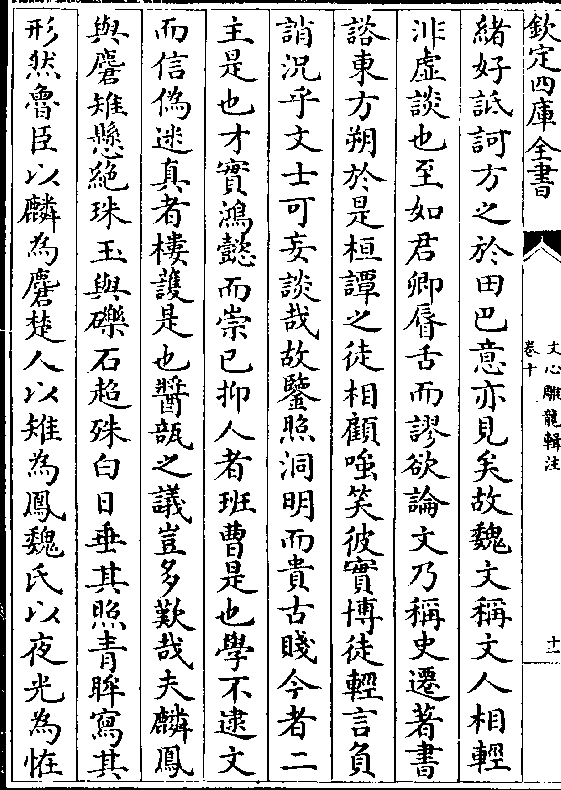 欽定四庫全書
文心雕龍輯注
卷十
十一
緒好詆訶方之於田巴意亦見矣故魏文稱文人相輕
非虛談也至如君卿脣舌而謬欲論文乃稱史遷著書
諮東方朔於是桓譚之徒相顧嗤笑彼實博徒輕言負
誚況乎文士可妄談哉故鑒照洞明而貴古賤今者二
主是也才實鴻懿而崇已抑人者班曹是也學不逮文
而信偽迷真者樓護是也醬瓿之議豈多歎哉夫麟鳳
與麏雉懸絕珠玉與礫石超殊白日垂其照青眸寫其
形然魯臣以麟為麏楚人以雉為鳳魏氏以夜光為怪